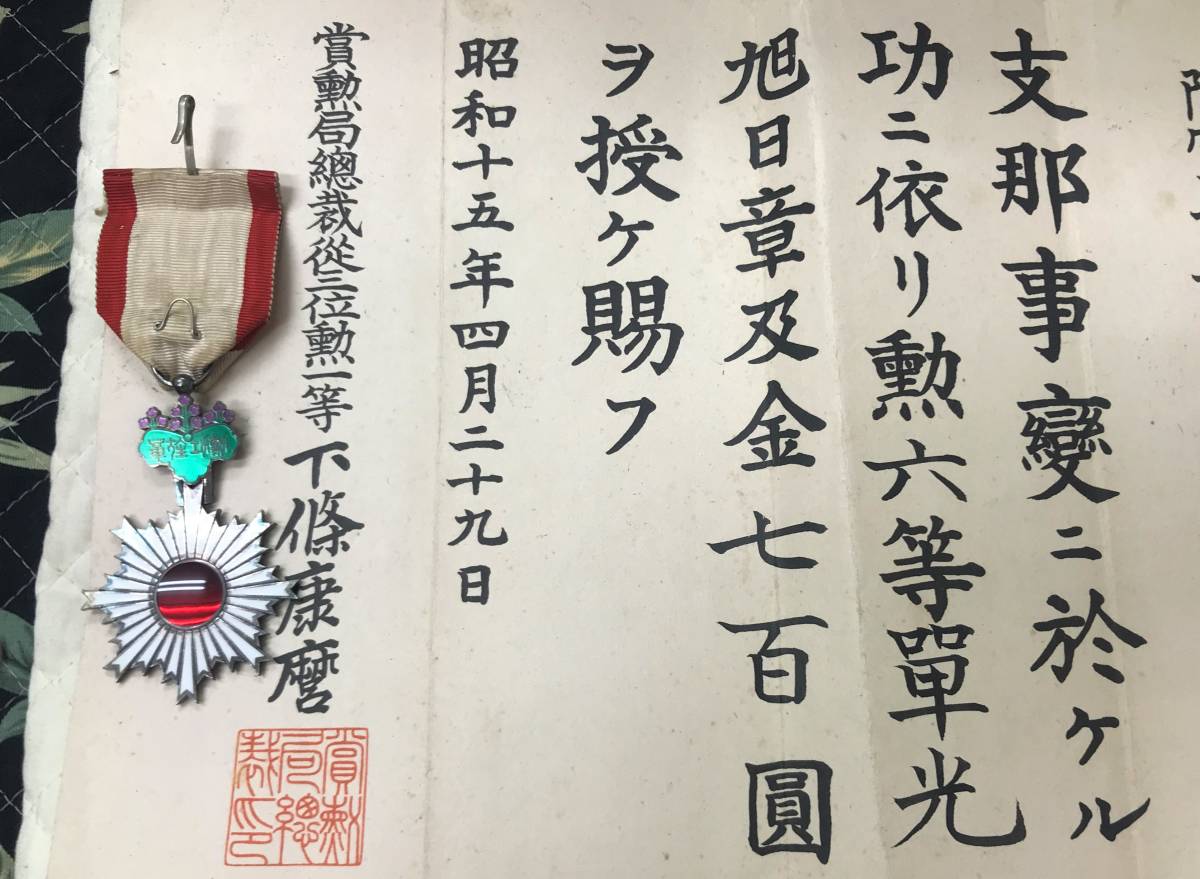 支那事變ニ於ケル
功ニ依リ勲六等單光
旭日章及金七百圓
ヲ授ケ賜フ
昭和十五年四月二十九日
賞勲局總裁從三位勲一等下條康麿
賞勲
局總
裁印